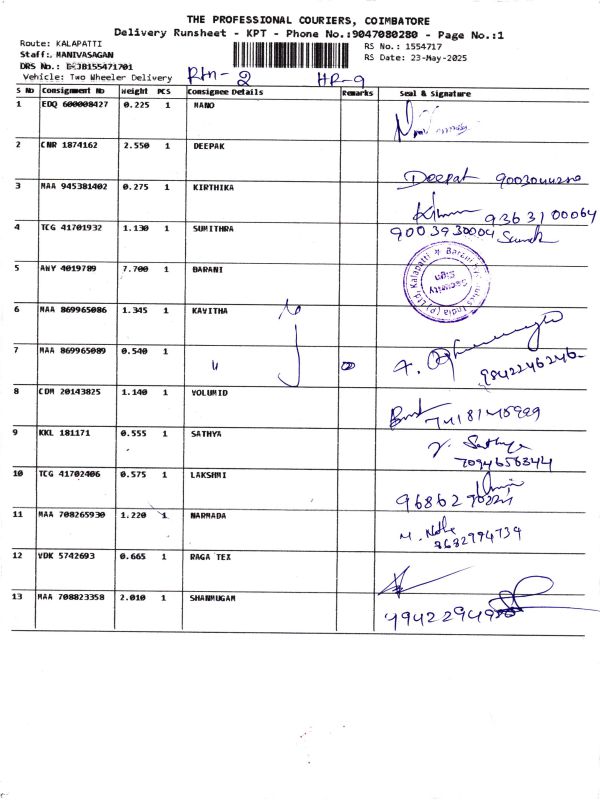 THE PROFESSIONAL COURIERS, COIMBATORE
Delivery Runsheet - KPT - Phone No.:9047080280 - Page No.:1
Route: KALAPATTI
RS No.: 1554717
Staff: MANIVASAGAN
RS Date: 23-May-2025
DRS No.:
Vehicle: Two Wheeler Delivery
S No Consignment No Weight PCS Consignee Details Remarks Seal & Signature
1 EDQ 600008427 0.225 1 MANO
2 CNR 1874162 2.550 1 DEEPAK
Deepak
3 MAA 945381402 0.275 1 KIRTHIKA
9363100064
4 TCG 41701932 1.130 1 SUMITHRA
9003930004
5 ANY 4019789 7.700 1 BARANI
Security Sign
6 MAA 869965086 1.345 1 KAVITHA
7 MAA 869965089 0.540 1 "
9842246246
8 CDM 20143825 1.140 1 VOLUMID
9 KKL 181171 0.555 1 SATHYA
Sathya
7094656344
10 TCG 41702406 0.575 1 LAKSHMI
11 MAA 708265930 1.220 1 NARMADA
8682994734
12 VDK 5742693 0.665 1 RAGA TEX
13 MAA 708823358 2.010 1 SHANMUGAM